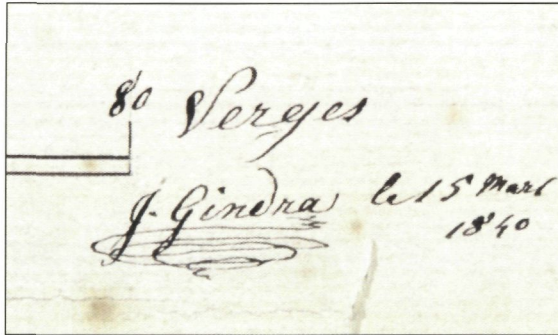 80 Verges
J. Gindra le 15 Mars
1840